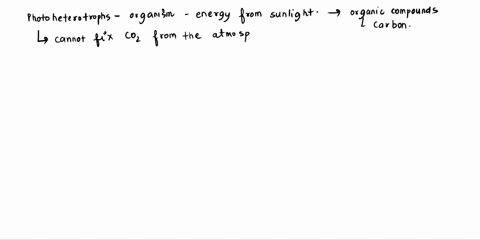 Photoheterotrophs - organism - energy from sunlight. → organic compounds
carbon.
↳ cannot fix CO2 from the atmosp